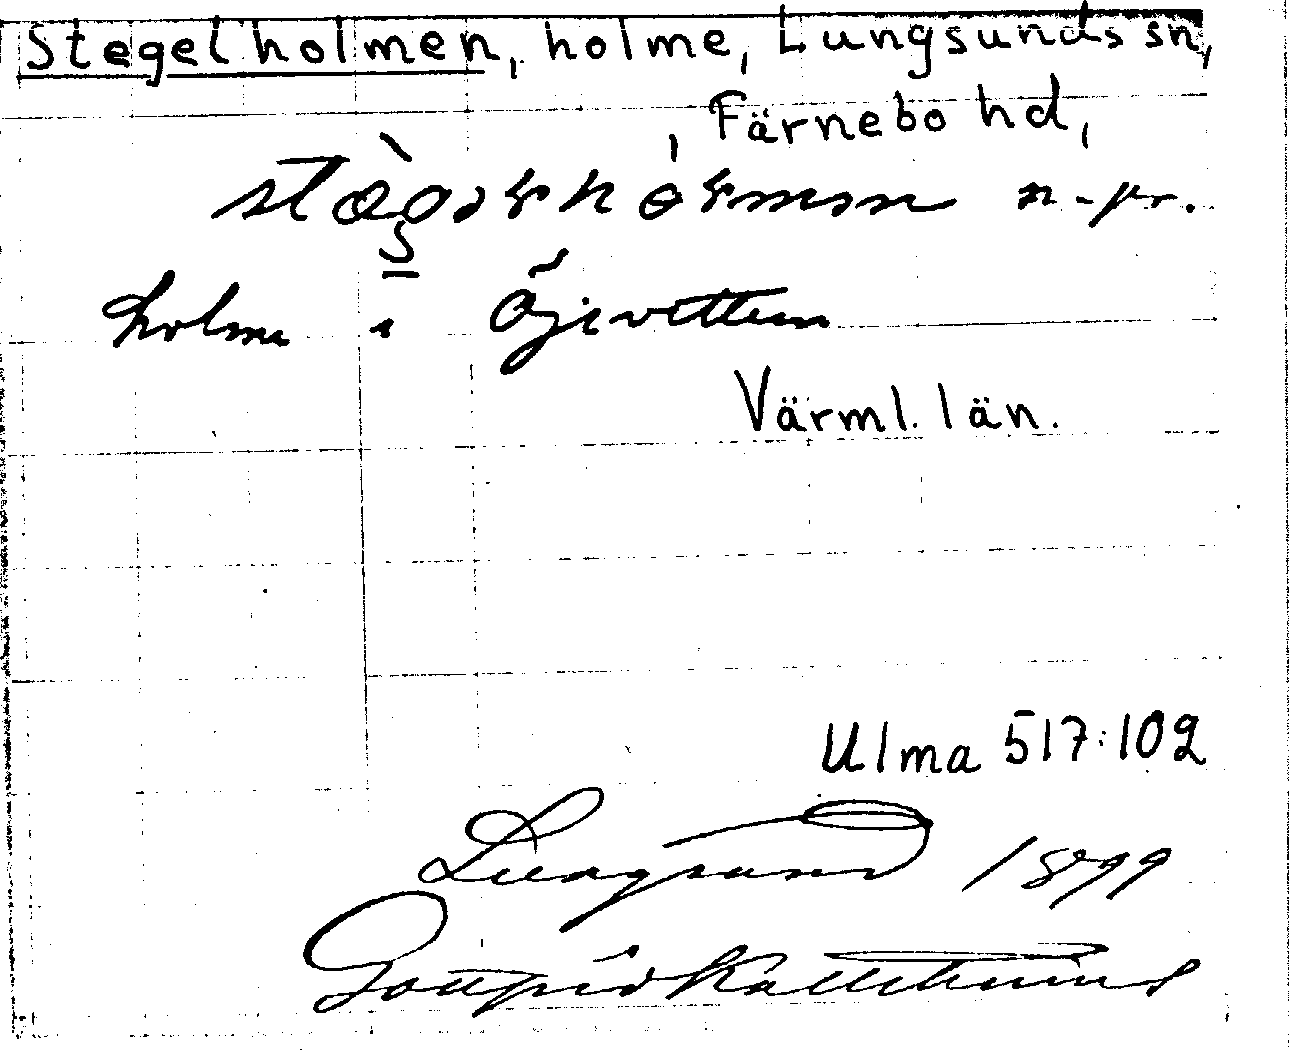 Stegelholmen, holme, Lungsunds sn,
Färnebo hd,
n. pr.
holme i Öjevettern
Värml. län.
Ulma 517:102
Lungsund 1899
Gottfrid Kallstenius